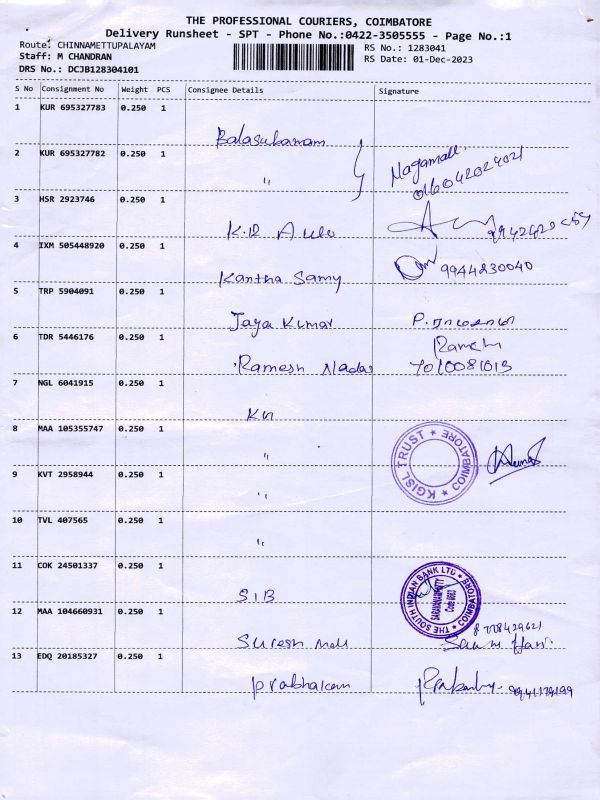 THE PROFESSIONAL COURIERS, COIMBATORE
Delivery Runsheet - SPT - Phone No.:0422-3505555 - Page No.:1
Route: CHINNAMETTUPALAYAM RS No.: 1283041
Staff: M CHANDRAN RS Date: 01-Dec-2023
DRS No.: DCJB128304101
S No Consignment No Weight PCS Consignee Details Signature
1 KUR 695327783 0.250 1
Balasubanam
2 KUR 695327782 0.250 1
" Nagamall
3 HSR 2923746 0.250 1
K.R
4 IXM 505448920 0.250 1
Kantha Samy 9944230040
5 TRP 5904091 0.250 1
Jaya Kumar
6 TDR 5446176 0.250 1
Ramesh Nadar 7010081013
7 NGL 6041915 0.250 1
8 MAA 105355747 0.250 1
" KGISL TRUST * COIMBATORE *
9 KVT 2958944 0.250 1
"
10 TVL 407565 0.250 1
"
11 COK 24501337 0.250 1
SIB THE SOUTH INDIAN BANK LTD * COIMBATORE *
12 MAA 104660931 0.250 1
Suresh
13 EDQ 20185327 0.250 1
Prabhakan